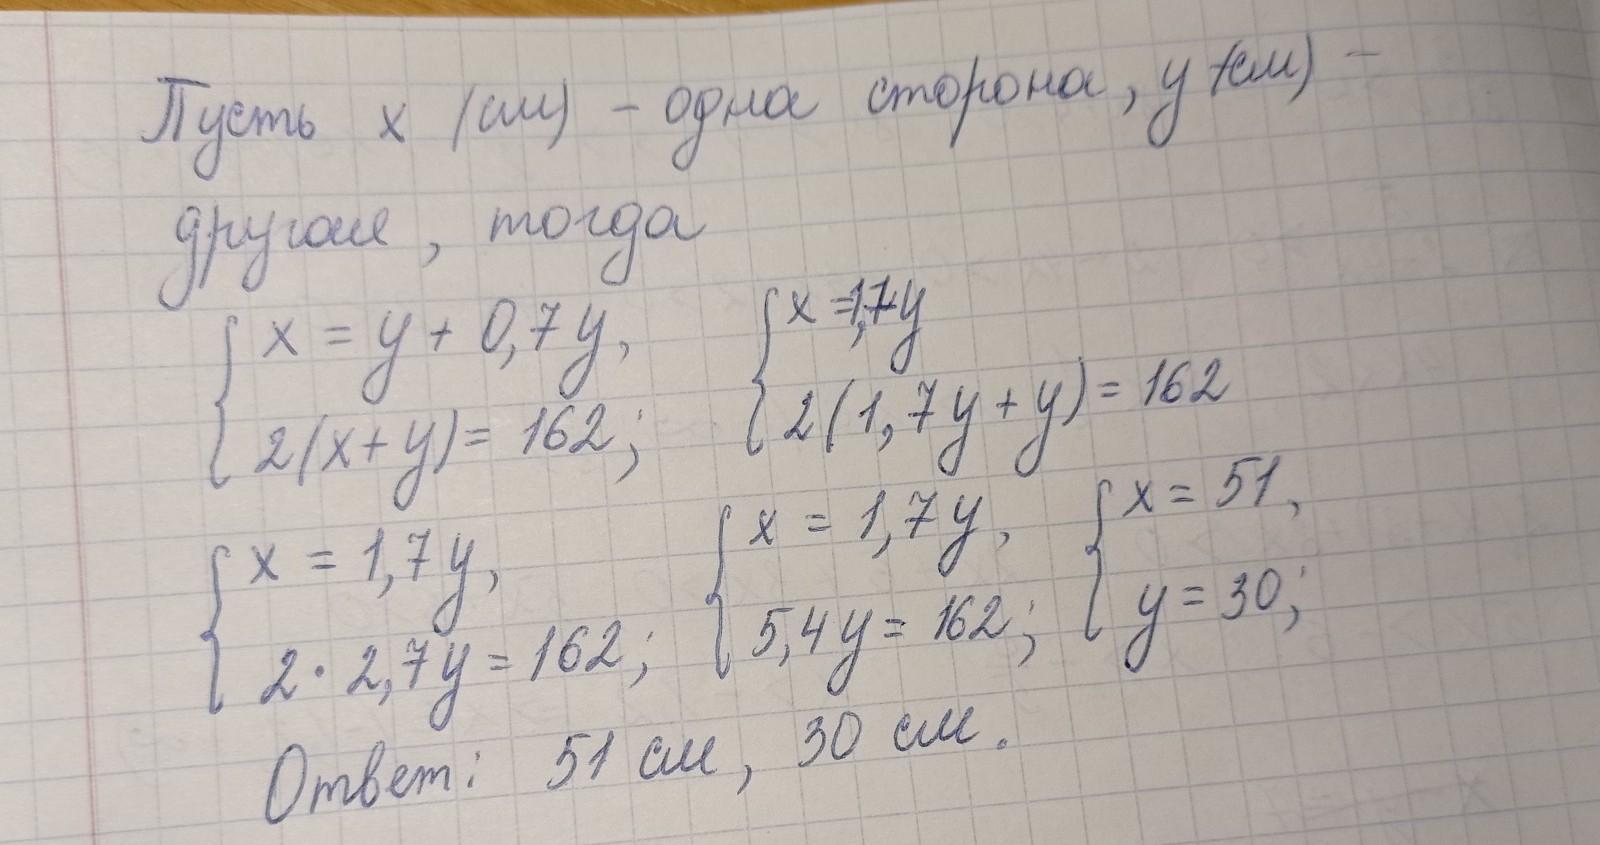 Пусть x (см) - одна сторона, y (см) -
другая, тогда
{ x = y + 0,7y, { x = 1,7y
2(x+y) = 162; 2(1,7y+y) = 162
{ x = 1,7y, { x = 1,7y, { x = 51,
2 · 2,7y = 162; 5,4y = 162; y = 30;
Ответ: 51 см, 30 см.